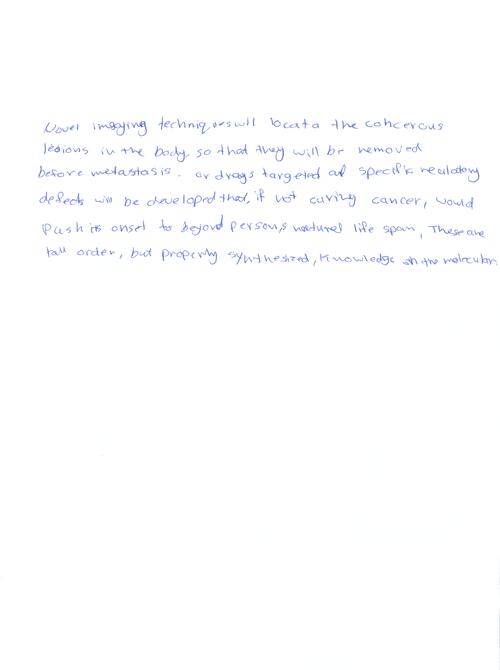 Novel imaging techniques will locata the cancerous
lesions in the body, so that they will be removed
before metastasis. or drugs targeted at specific regulatory
defects will be developed that, if not curing cancer, would
Push its onset to beyond person,s natural life span, These are
tall order, but properly synthesized, Knowledge oh the molecular